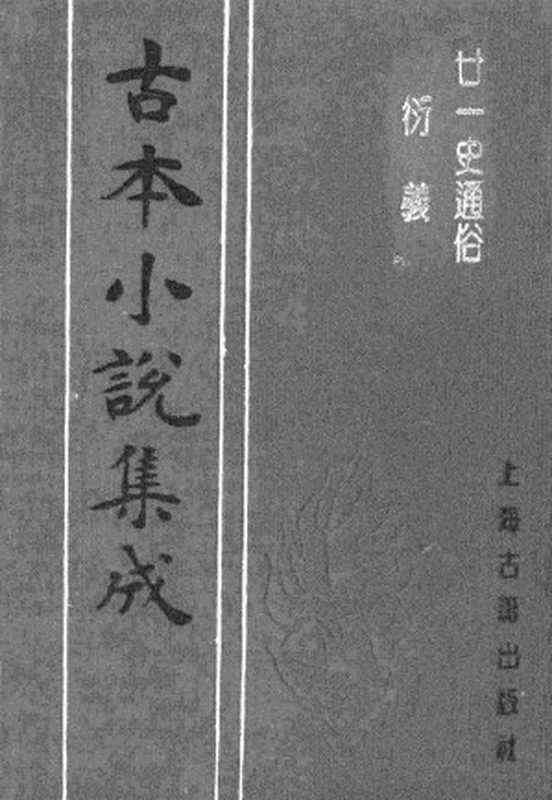 廿一史通俗
衍義
上海古籍出版社
古本小說集成